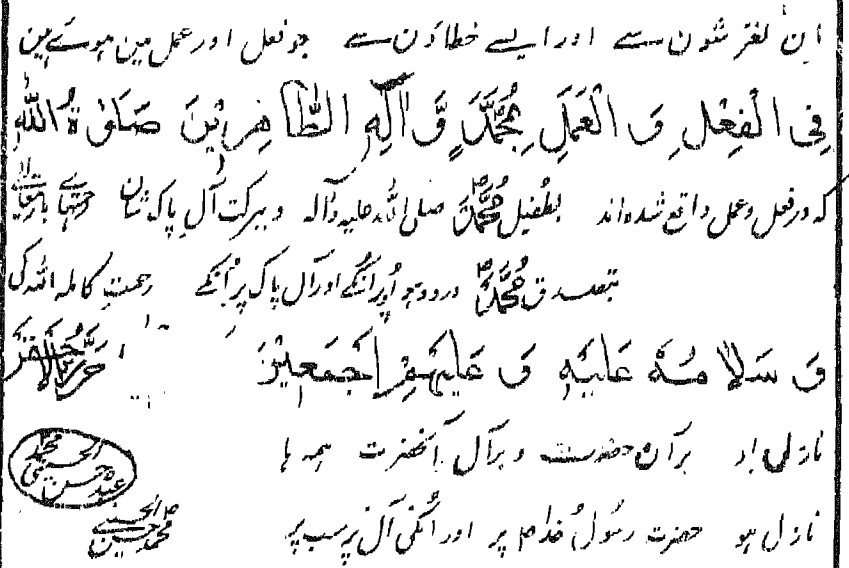 ان لغزشون سے اور ایسے خطاؤن سے جو فعل اور عمل مین ہوے ہین
فِی الْفِعْلِ وَ الْعَمَلِ بِمُحَمَّدٍ وَّ اٰلِهِ الطَّاهِرِیْنَ صَلَوٰةُ اللّٰهِ
که در فعل و عمل واقع شده اند بطفیل محمدؐ صلی الله علیه و آله و ببرکت آل پاک شان رحمتہاے
بتصدق محمدؐ درود ہو اوپر انکے اور آل پاک پر انکے رحمت کاملہ اللہ کی
وَ سَلَامُهٗ عَلَیْهِ وَ عَلَیْهِمْ اَجْمَعِیْنَ
نازل باد بر آن حضرت و بر آل آنحضرت همه ها
نازل ہو حضرت رسول خدا پر اور انکی آل پر سب پر
محمد حسین الحسینی